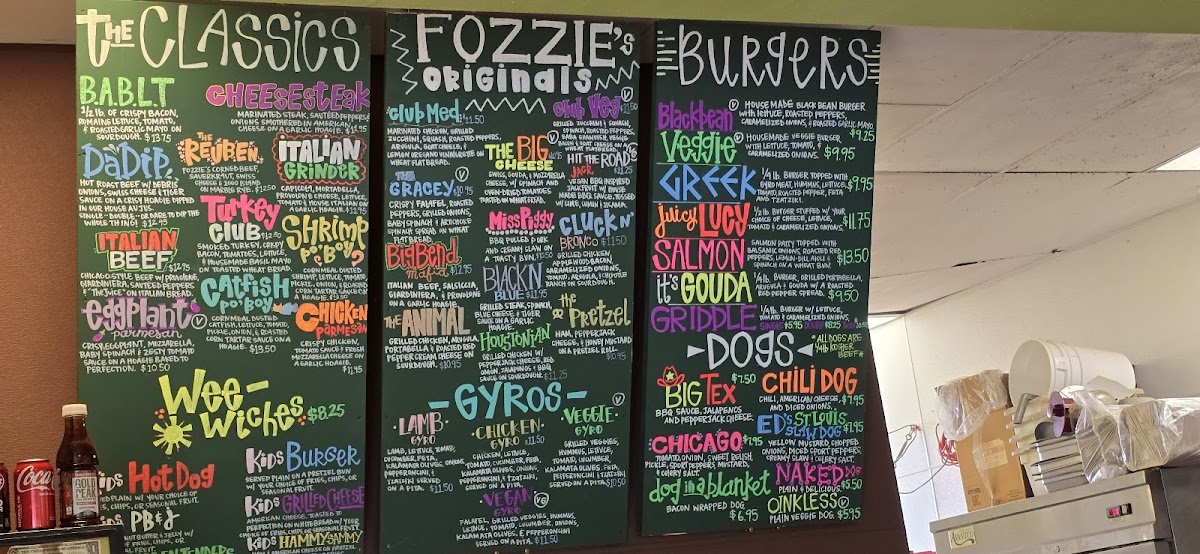 THE CLASSICS
B.A.B.L.T
1/2 lb. OF CRISPY BACON,
ROMAINE LETTUCE, TOMATO,
& ROASTED GARLIC MAYO ON
SOURDOUGH. $13.75
CHEESESTEAK
MARINATED STEAK, SAUTÉED PEPPERS &
ONIONS SMOTHERED IN AMERICAN
CHEESE ON A GARLIC HOAGIE. $11.95
DADIP
HOT ROAST BEEF W/ DEBRIS
ONIONS, SWISS CHEESE & TIGER
SAUCE ON A CRISY HOAGIE DIPPED
IN OUR HOUSE AU JUS.
SINGLE - DOUBLE - OR DARE TO DIP THE
WHOLE THING! $12.95
THE REUBEN
FOZZIE'S CORNED BEEF,
SAUERKRAUT, SWISS
CHEESE & 1000 ISLAND
ON MARBLE RYE. $12.50
ITALIAN GRINDER
CAPICOLI, MORTADELLA,
PROVOLONE CHEESE, LETTUCE,
TOMATO &
ON A GARLIC HOAGIE. $11.95
TURKEY CLUB
SMOKED TURKEY, CRISPY
BACON, TOMATOES, LETTUCE,
& HOUSEMADE BASIL MAYO
ON TOASTED WHEAT BREAD.
SHRIMP PO'BOY
CORN MEAL DUSTED
SHRIMP, LETTUCE, TOMATO,
PICKLE, ONION, & ROASTED
CORN TARTAR SAUCE ON
A HOAGIE. $13.00
ITALIAN BEEF $12.75
CHICAGO STYLE BEEF W/ PROVOLONE,
GIARDINIERA, SAUTÉED PEPPERS
& "THE JUICE" ON ITALIAN BREAD.
CATFISH PO'BOY
CORN MEAL DUSTED
CATFISH, LETTUCE, TOMATO,
PICKLE, ONION, & ROASTED
CORN TARTAR SAUCE ON A
HOAGIE. $13.50
EGGPLANT PARMESAN V
CRISPY EGGPLANT, MOZZARELLA,
BABY SPINACH & ZESTY TOMATO
SAUCE ON A HOAGIE BAKED TO
PERFECTION. $10.50
CHICKEN PARMESAN
CRISPY CHICKEN,
TOMATO SAUCE & FRESH
MOZZARELLA CHEESE ON
A GARLIC HOAGIE.
$11.95
WEE-WICHES $8.25
KIDS HOT DOG
SERVED PLAIN W/ YOUR CHOICE OF
FRIES, CHIPS, OR SEASONAL FRUIT.
KIDS BURGER
SERVED PLAIN ON A PRETZEL BUN
W/ YOUR CHOICE OF FRIES, CHIPS, OR
SEASONAL FRUIT.
PB&J
BUTTER & JELLY W/
OF FRIES, CHIPS, OR
FRUIT.
KIDS GRILLED CHEESE
AMERICAN CHEESE, TOASTED TO
PERFECTION ON WHITE BREAD W/ YOUR
CHOICE OF FRIES, CHIPS OR SEASONAL FRUIT.
KIDS HAMMY SAMMY
TENDERS
FOZZIE'S ORIGINALS
CLUB MED $11.50
MARINATED CHICKEN, GRILLED
ZUCCHINI, SQUASH, ROASTED PEPPERS,
ARUGULA, GOAT CHEESE, &
LEMON OREGANO VINAIGRETTE ON
WHEAT FLATBREAD.
CLUB VEG V $11.50
GRILLED ZUCCHINI & SQUASH,
SPINACH, ROASTED PEPPERS,
BABA GHANOUSH, VEGGIE
BACON & GOAT CHEESE ON
WHEAT FLATBREAD.
THE BIG CHEESE V
SWISS, GOUDA, & MOZZARELLA
CHEESE, W/ SPINACH AND
OVEN-DRIED TOMATOES
TOASTED ON WHEAT BREAD.
HIT THE ROAD JACK V $11.25
VEGAN BBQ INSPIRED
JACKFRUIT W/ HOUSE
MADE BBQ SAUCE, TOSSED
THE GRACEY V $10.95
CRISPY FALAFEL, ROASTED
PEPPERS, GRILLED ONIONS,
BABY SPINACH & ARTICHOKE
SPINACH SPREAD ON WHEAT
FLATBREAD.
MISS PIGGY
BBQ PULLED PORK
AND CREAMY SLAW ON
A TOASTY BUN. $10.50
CLUCK N' BRONCO $11.50
GRILLED CHICKEN,
APPLEWOOD BACON,
CARAMELIZED ONIONS,
TOMATO, ARUGULA, & CHIPOTLE
RANCH ON SOURDOUGH.
BIG BEND MAFIA $12.95
ITALIAN BEEF, SALSICCIA,
GIARDINIERA, & PROVOLONE
ON A GARLIC HOAGIE.
BLACK N BLUE $11.95
GRILLED STEAK, SPINACH,
BLUE CHEESE & TIGER
SAUCE ON A GARLIC
HOAGIE.
THE PRETZEL
HAM, PEPPERJACK
CHEESE, & HONEY MUSTARD
ON A PRETZEL ROLL.
$10.95
THE ANIMAL
GRILLED CHICKEN, ARUGULA,
PORTABELLA & ROASTED RED
PEPPER CREAM CHEESE ON
SOURDOUGH. $10.95
HOUSTONIAN
GRILLED CHICKEN W/
PEPPERJACK CHEESE, RED
ONION, JALAPEÑOS & BBQ
SAUCE ON SOURDOUGH. $11.25
-GYROS-
LAMB GYRO
LAMB, LETTUCE, TOMATO,
CUCUMBER, FETA,
KALAMATA OLIVES, ONION,
PEPPERONCINI &
TZATZIKI SERVED
ON A PITA. $11.50
CHICKEN GYRO $11.50
CHICKEN, LETTUCE,
TOMATO, CUCUMBER, FETA,
KALAMATA OLIVES, ONION,
PEPPERONCINI & TZATZIKI
SERVED ON A PITA.
VEGGIE GYRO V
GRILLED VEGGIES,
HUMMUS, LETTUCE,
TOMATO, CUCUMBER,
KALAMATA OLIVES, FETA,
PEPPERONCINI & TZATZIKI
ON A PITA. $10.50
VEGAN GYRO VG
FALAFEL, GRILLED VEGGIES, HUMMUS,
LETTUCE, TOMATO, CUCUMBER, ONIONS,
KALAMATA OLIVES, & PEPPERONCINI
SERVED ON A PITA. $11.50
BURGERS
BLACKBEAN V
HOUSE MADE BLACK BEAN BURGER
WITH LETTUCE, ROASTED PEPPERS,
CARAMELIZED ONIONS, & ROASTED GARLIC MAYO
$9.25
VEGGIE V
HOUSEMADE VEGGIE BURGER
WITH LETTUCE, TOMATO, &
CARAMELIZED ONIONS. $9.95
GREEK
1/4 lb. BURGER TOPPED WITH
GYRO MEAT, HUMMUS, LETTUCE,
TOMATO, ROASTED PEPPER, FETA
AND TZATZIKI. $9.95
JUICY LUCY
1/2 lb. BURGER STUFFED W/ YOUR
CHOICE OF CHEESE, LETTUCE,
TOMATO & CARAMELIZED ONIONS. $11.75
SALMON
SALMON PATTY TOPPED WITH
BALSAMIC ONIONS, ROASTED RED
PEPPERS, LEMON-DILL AIOLI &
SPINACH ON A WHEAT BUN. $13.50
IT'S GOUDA
1/4 lb. BURGER, GRILLED PORTABELLA,
ARUGULA & GOUDA W/ A ROASTED
RED PEPPER SPREAD. $9.50
GRIDDLE
1/4 lb. BURGER W/ LETTUCE,
TOMATO & CARAMELIZED ONIONS.
SINGLE $5.95 DOUBLE $8.25
DOGS
*ALL DOGS ARE
1/4 lb KOSHER
BEEF*
BIG TEX $7.50
BBQ SAUCE, JALAPENOS
AND PEPPERJACK CHEESE.
CHILI DOG
CHILI, AMERICAN CHEESE, $7.95
AND DICED ONIONS.
CHICAGO $7.95
TOMATO, ONION, SWEET RELISH,
PICKLE, SPORT PEPPERS, MUSTARD,
& CELERY SALT.
ED'S ST. LOUIS SLAW DOG $7.95
YELLOW MUSTARD, CHOPPED
ONIONS, DICED SPORT PEPPERS,
CREAMY SLAW & CELERY SALT.
DOG IN A BLANKET
BACON WRAPPED DOG.
$6.95
NAKED DOG
PLAIN & DELICIOUS. $5.50
OINKLESS V
PLAIN VEGGIE DOG. $5.95
Coca-Cola
GOLD PEAK
AVANTCO